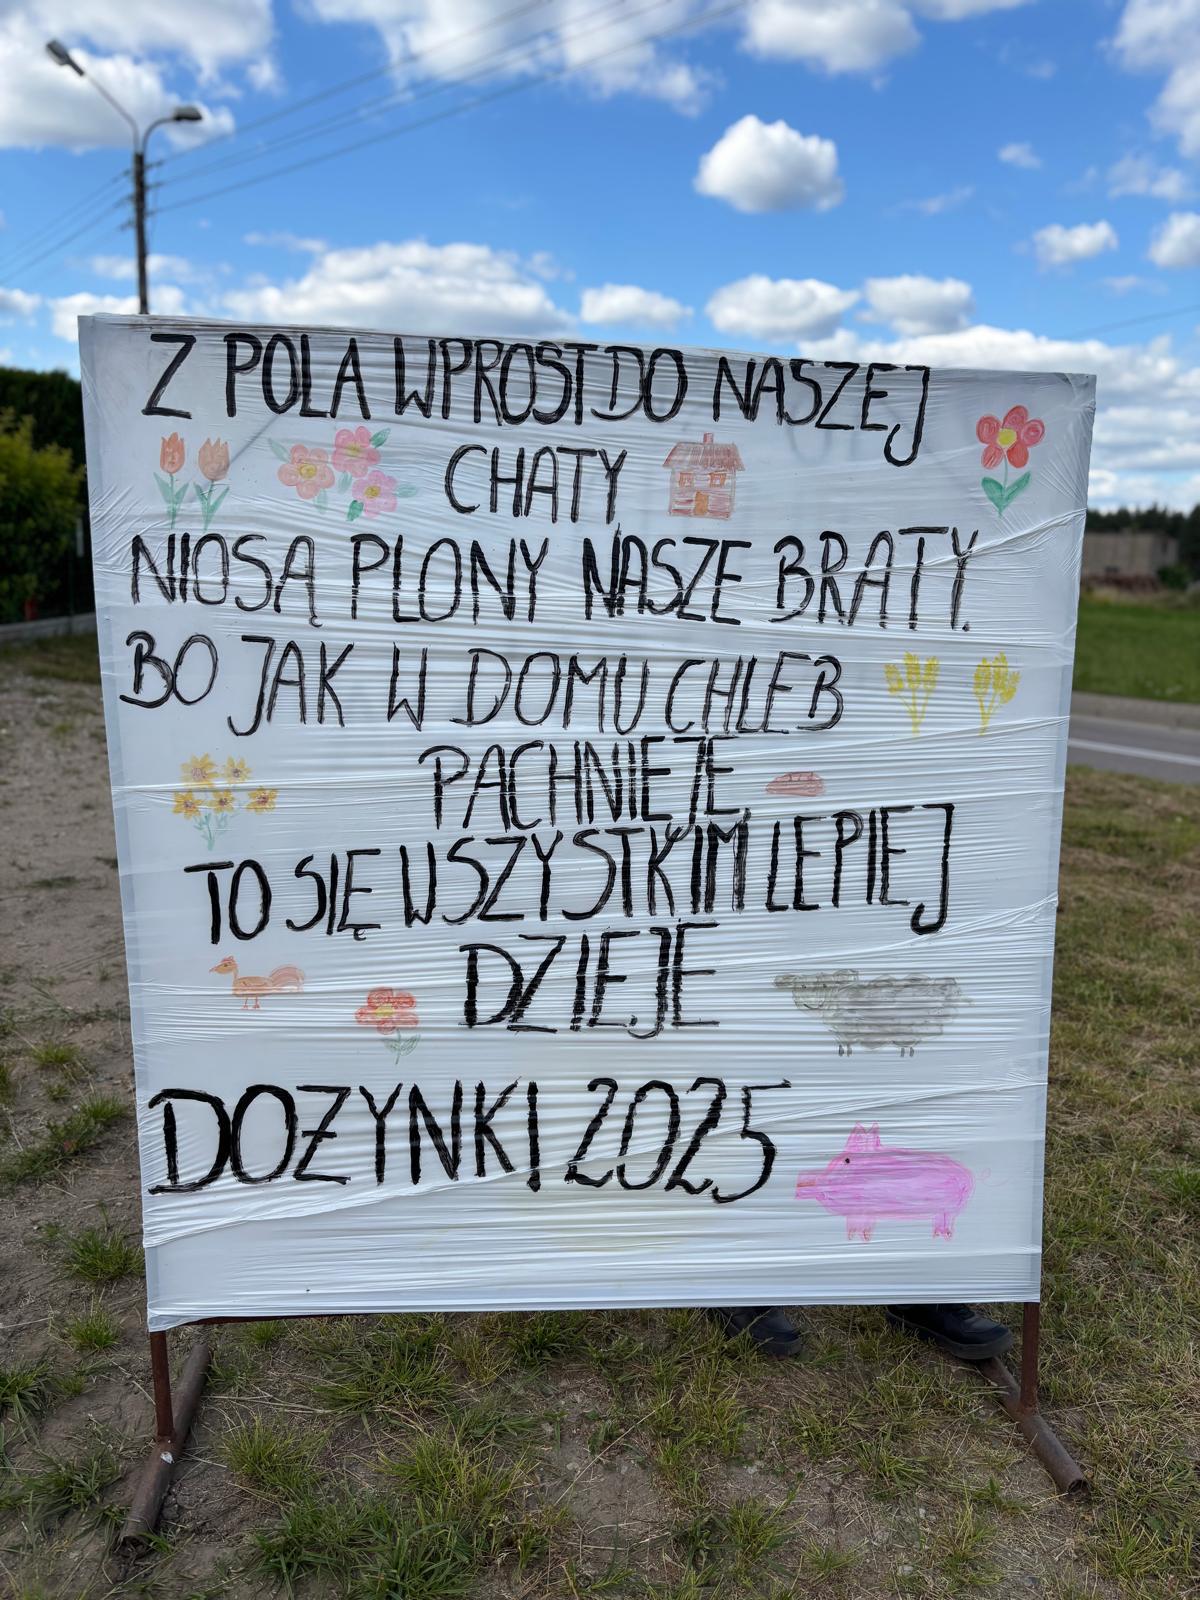 Z POLA WPROST DO NASZEJ
CHATY
NIOSĄ PLONY NASZE BRATY.
BO JAK W DOMU CHLEB
PACHNIEJE,
TO SIĘ WSZYSTKIM LEPIEJ
DZIEJE
DOŻYNKI 2025